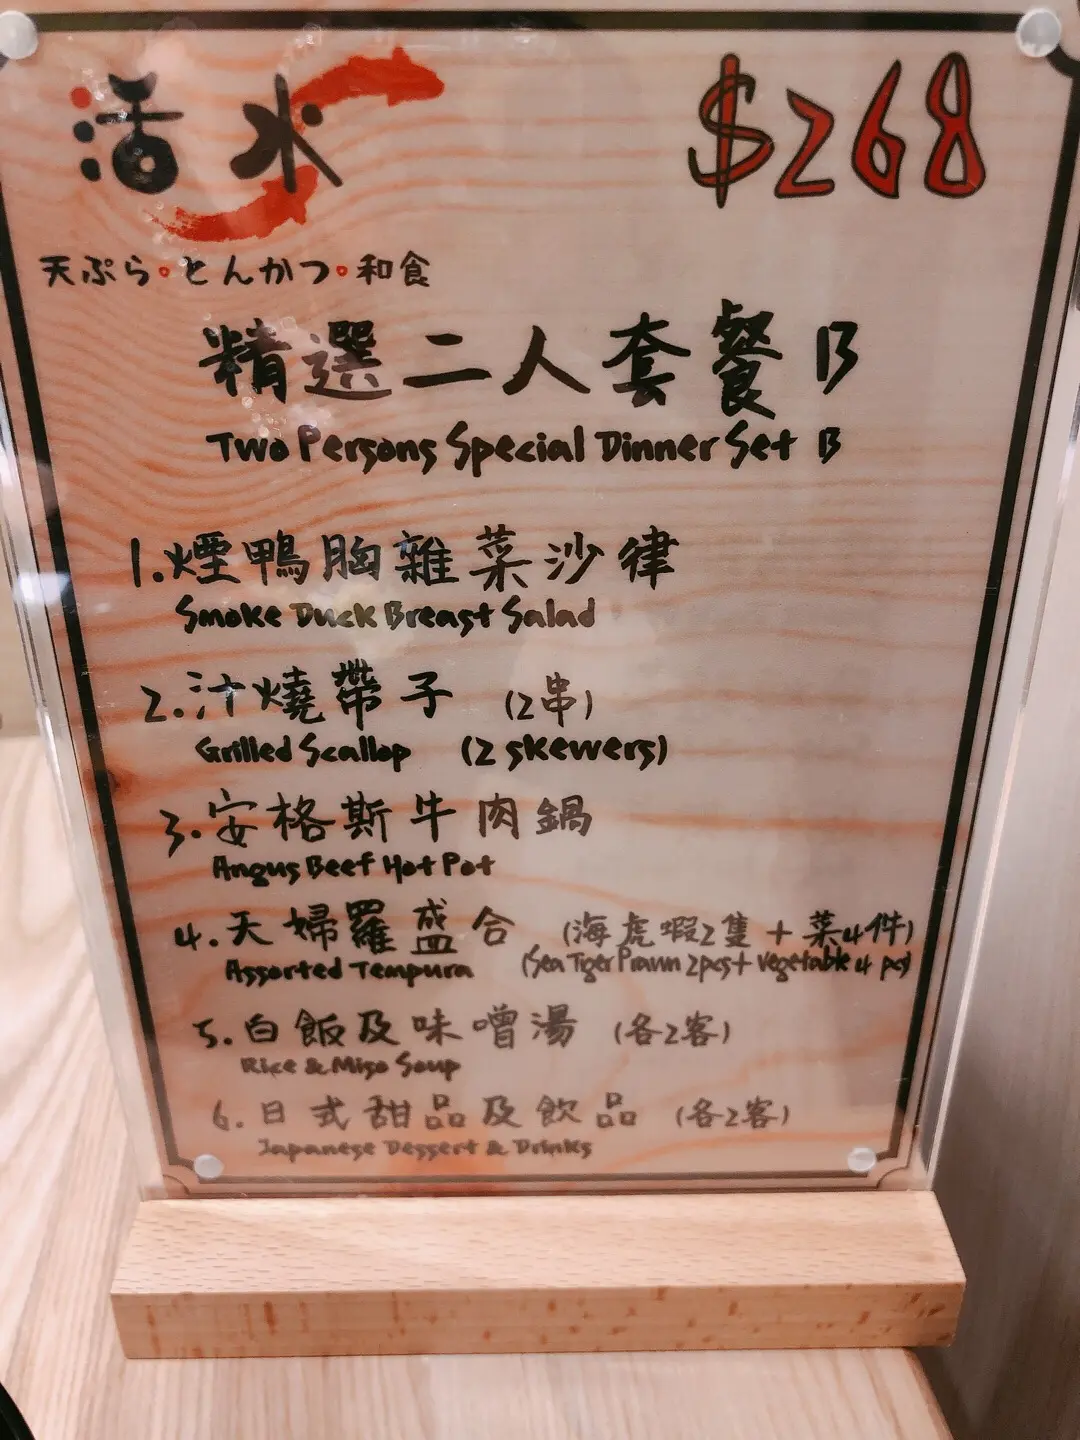 活水
$268
天ぷら・とんかつ・和食
精選二人套餐 B
Two Persons Special Dinner Set B
1.煙鴨胸雜菜沙律
Smoke Duck Breast Salad
2.汁燒帶子 (2串)
Grilled Scallop (2 skewers)
3.安格斯牛肉鍋
Angus Beef Hot Pot
4.天婦羅盛合 (海虎蝦2隻+菜4件)
Assorted Tempura (Sea Tiger Prawn 2pcs+ vegetable 4 pcs)
5.白飯及味噌湯 (各2客)
Rice & Miso Soup
6.日式甜品及飲品 (各2客)
Japanese Dessert & Drinks